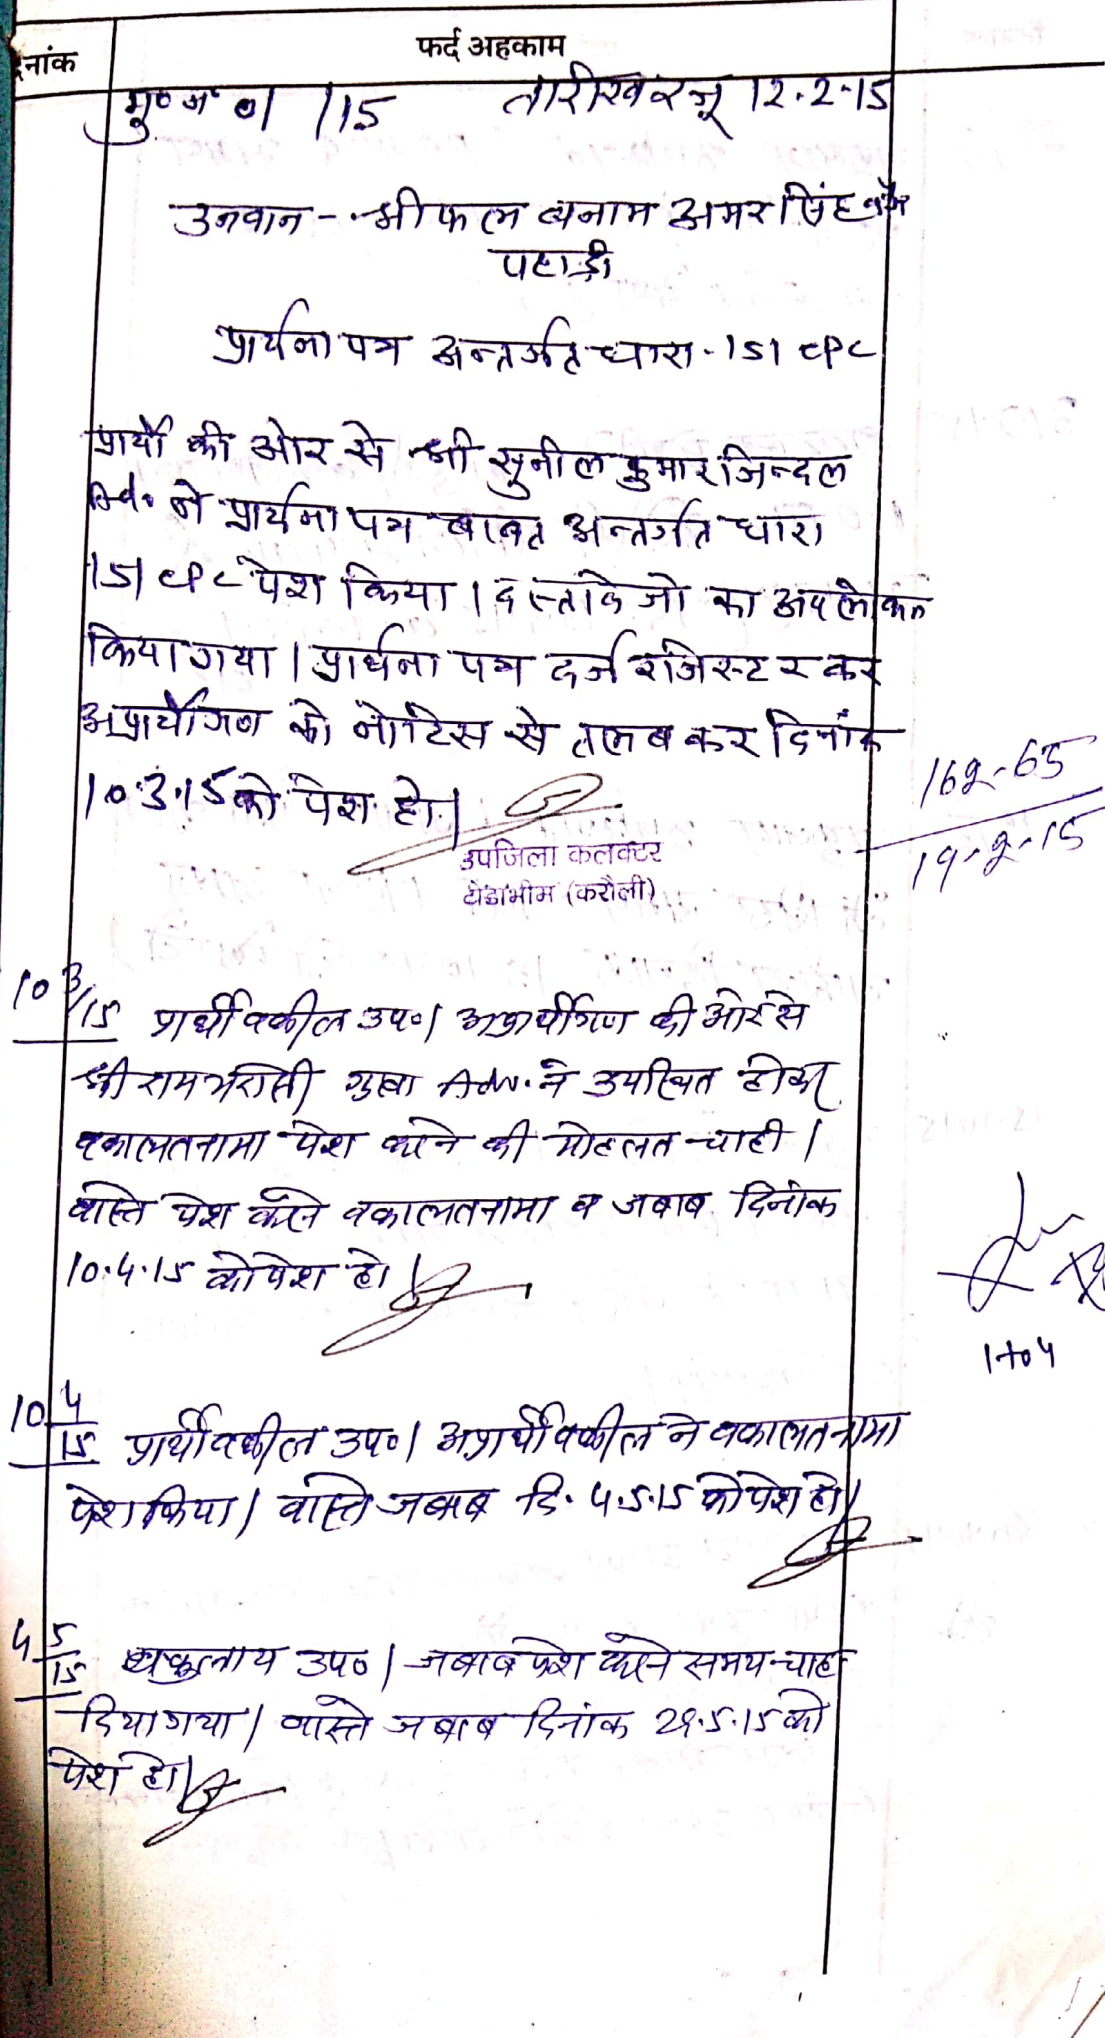 दिनांक
फर्द अहकाम
मु० न० 01/15 तारीख रजू 12.2.15
उनवान - श्रीफल बनाम अमरसिंह
पहाडी
प्रार्थना पत्र अन्तर्गत धारा - 151 CPC
प्रार्थी की ओर से श्री सुनील कुमार जिन्दल
Adv. ने प्रार्थना पत्र बाबत अन्तर्गत धारा
151 CPC पेश किया। दस्तावेजो का अवलोकन
किया गया। प्रार्थना पत्र दर्ज रजिस्टर कर
अप्रार्थीगण को नोटिस से तलब कर दिनांक
10.3.15 को पेश हो।
162-65
19-2-15
उपजिला कलक्टर
टोडाभीम (करौली)
10 3/15 प्रार्थी वकील उप०। अप्रार्थीगण की ओर से
श्री रामभरोसी गुप्ता Adv. ने उपस्थित होकर
वकालतनामा पेश करने की मोहलत चाही।
वास्ते पेश करने वकालतनामा व जबाब दिनांक
10.4.15 को पेश हो।
1 to 4
10 4/15 प्रार्थी वकील उप०। अप्रार्थी वकील ने वकालतनामा
पेश किया। वास्ते जबाब दि. 4.5.15 को पेश हो।
4 5/15 वकुलाय उप०। जबाब पेश करने समय चाहा
दिया गया। वास्ते जबाब दिनांक 29.5.15 को
पेश हो।